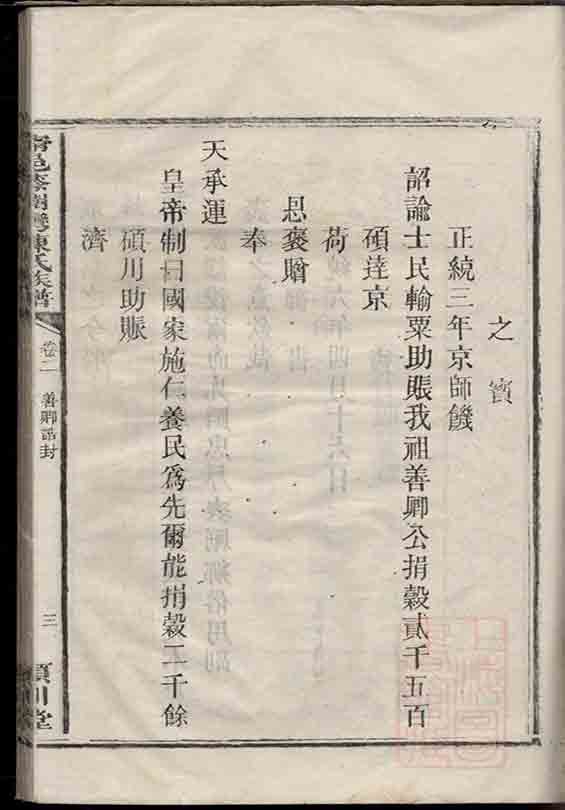 之　寶
正統三年京師饑
詔諭士民輸粟助賬我祖善卿公捐穀貳千五百
碩達京
荷
恩褒贈
奉
天承運
皇帝制曰國家施仁養民爲先爾能捐穀二千餘
碩用助賑
濟
陳氏族譜
卷二　善卿誥封
三
潁川堂